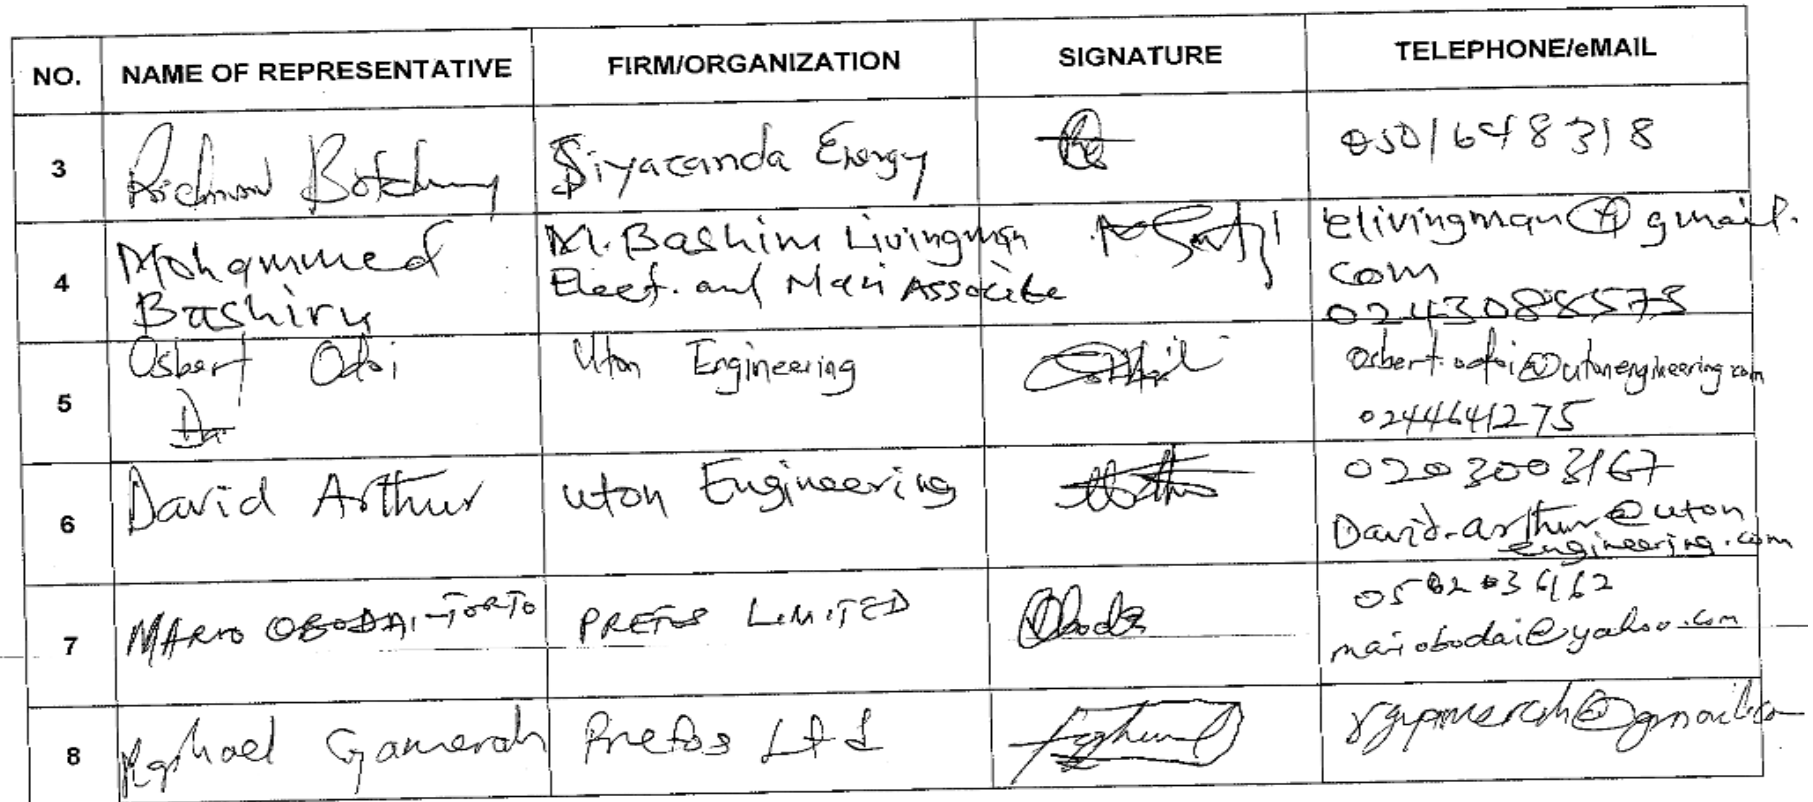 NO. NAME OF REPRESENTATIVE FIRM/ORGANIZATION SIGNATURE TELEPHONE/eMAIL
3 Richmond Botchwey Siyacanda Energy 0501648318
4 Mohammed Bashiru M. Bashiru Livingman elivingman@gmail.
Elect. and Associate com
0243088573
5 Osbert Odoi Uton Engineering osbert.odoi@utonengineering.com
0244641275
6 David Arthur Uton Engineering 0203003167
David.arthur@uton
engineering.com
7 MARIO OBODAI-TORTO PREFOS LIMITED
mariobodai@yahoo.com
8 Raphael Gamerah Prefos Ltd